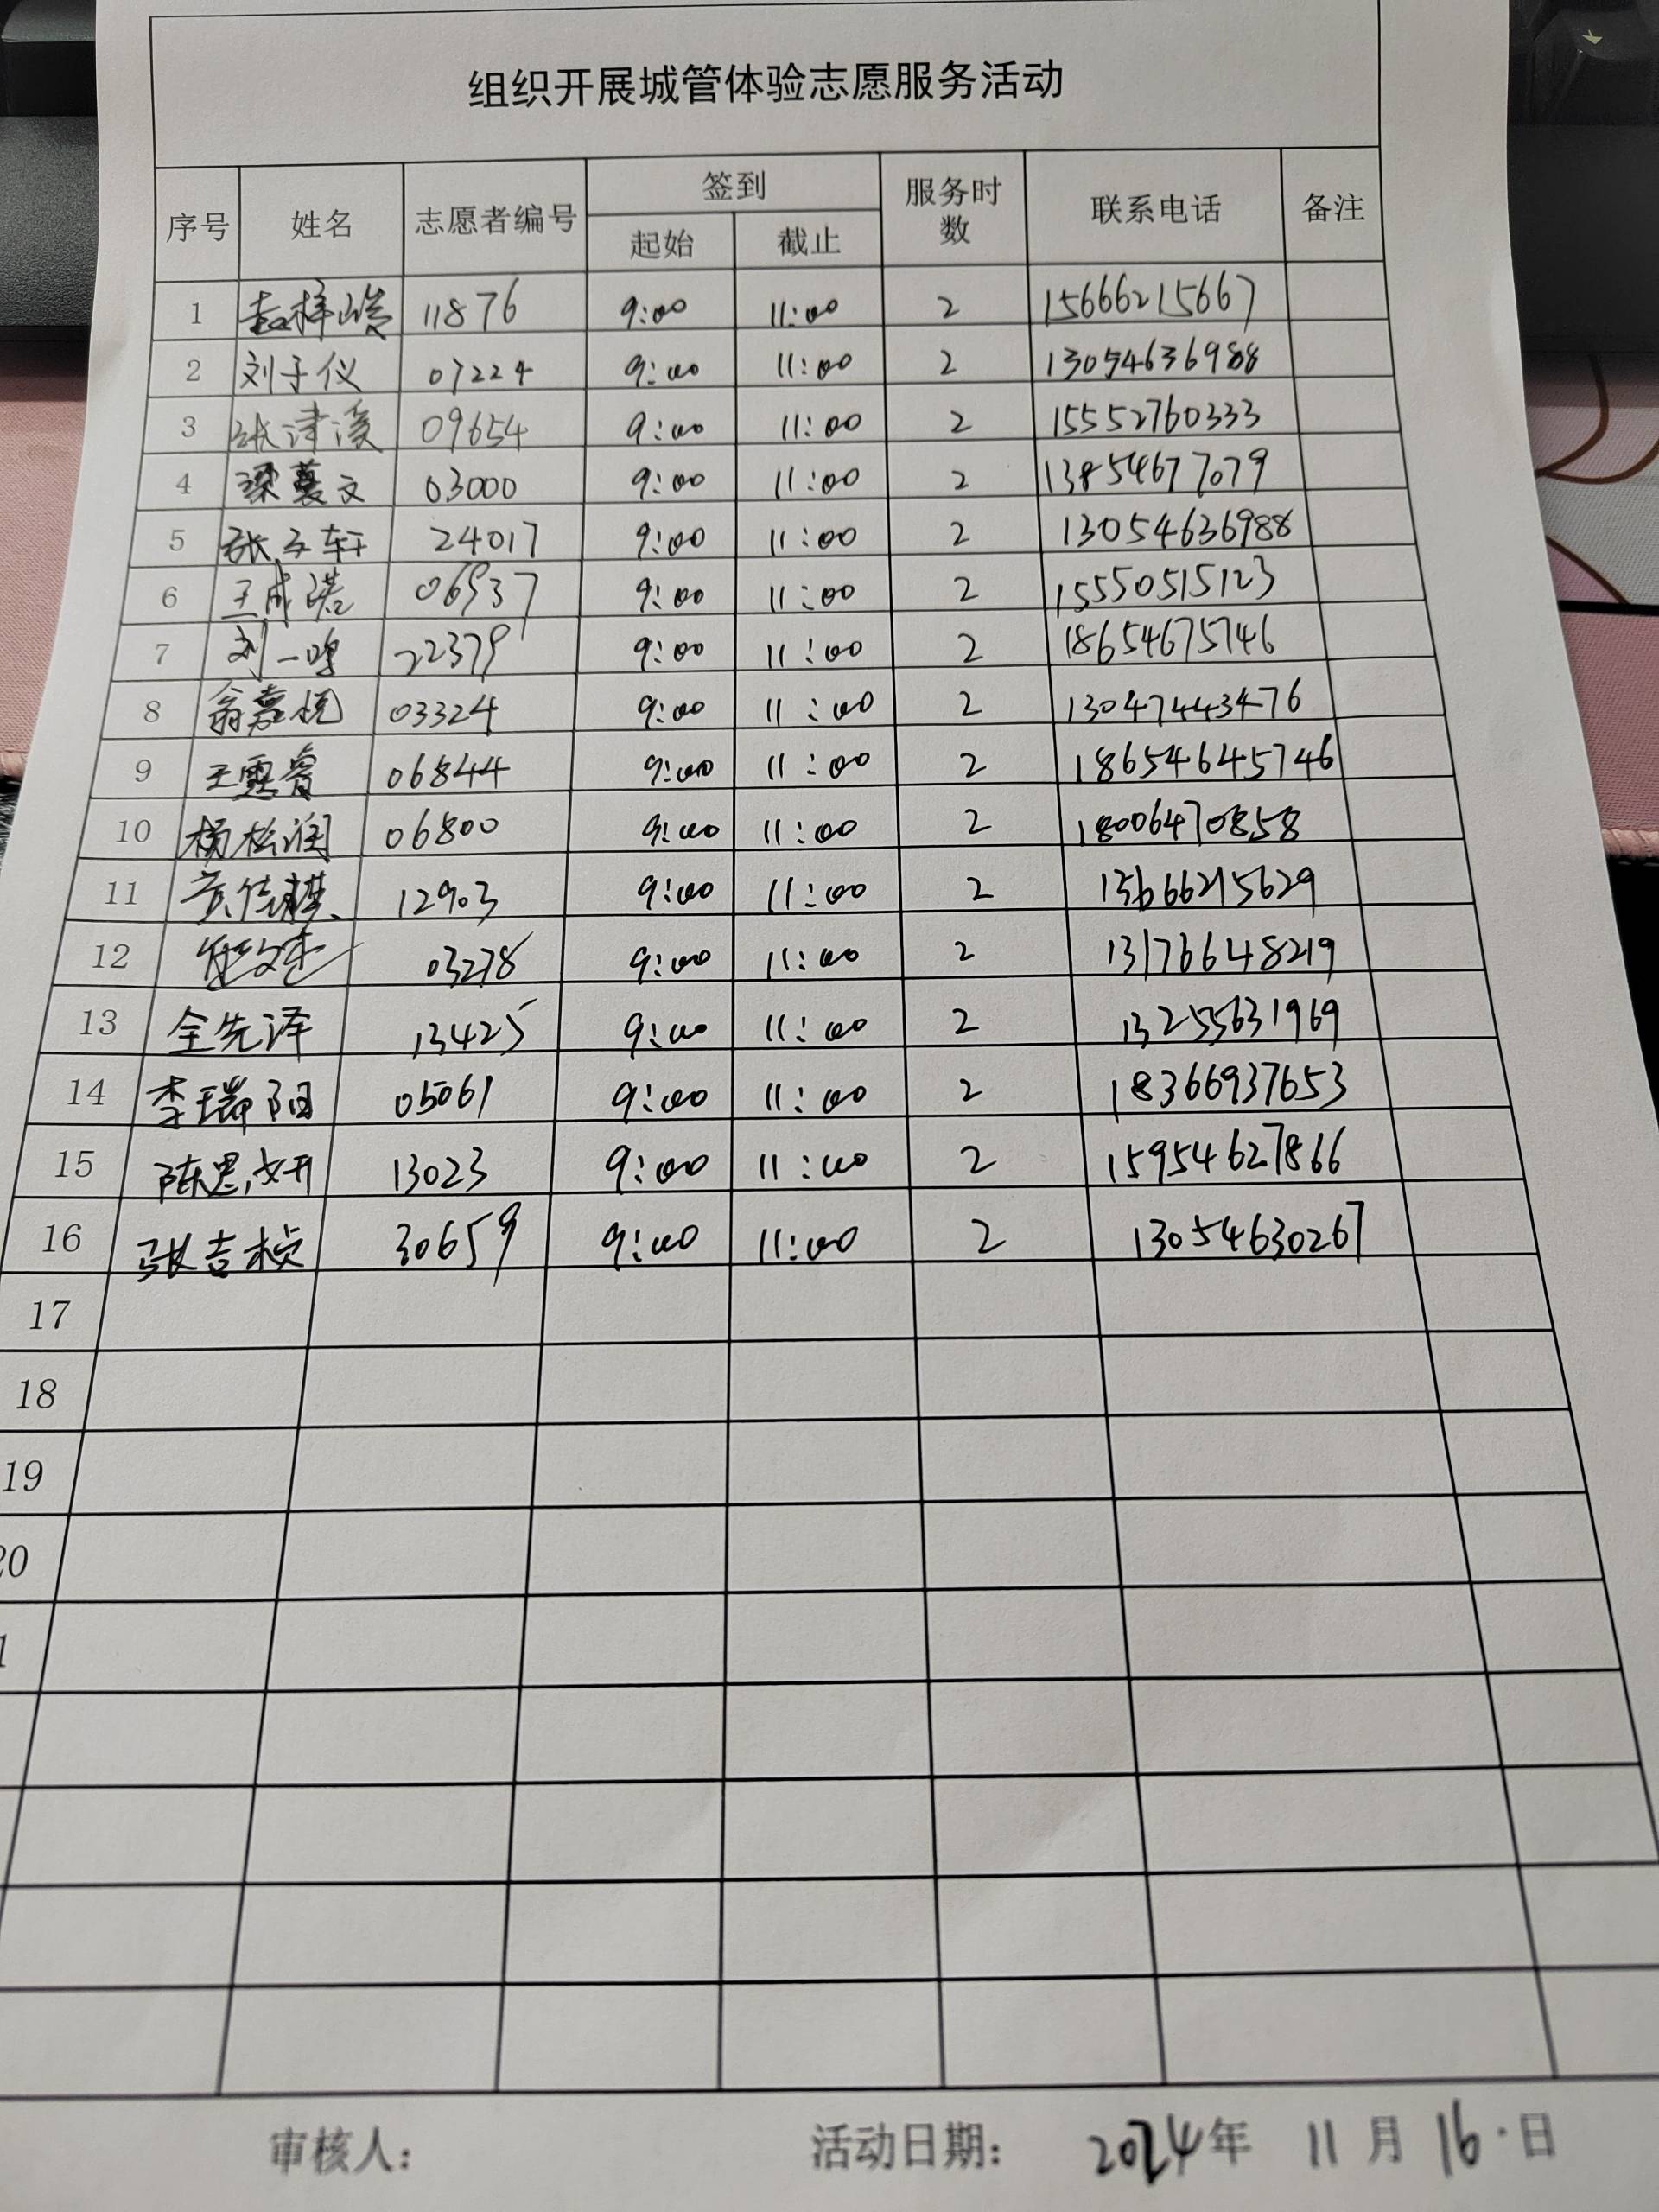 组织开展城管体验志愿服务活动
序号 姓名 志愿者编号 签到 服务时数 联系电话 备注
起始 截止
1 11876 9:00 11:00 2 15666215667
2 刘子仪 07224 9:00 11:00 2 13054636988
3 张津溪 09654 9:00 11:00 2 15552760333
4 梁蔓文 03000 9:00 11:00 2 13854677079
5 张子轩 24017 9:00 11:00 2 13054636988
6 王成诺 06937 9:00 11:00 2 15550515123
7 刘一鸣 22379 9:00 11:00 2 18654675746
8 翁嘉悦 03324 9:00 11:00 2 13047443476
9 王露 06844 9:00 11:00 2 18654645746
10 杨松润 06800 9:00 11:00 2 18006470858
11 12903 9:00 11:00 2 13666215629
12 03278 9:00 11:00 2 13176648219
13 全先泽 13425 9:00 11:00 2 13255631969
14 李瑞阳 05061 9:00 11:00 2 18366937653
15 陈思妍 13023 9:00 11:00 2 15954627866
16 张吉桢 30659 9:00 11:00 2 13054630267
17
18
19
20
1
审核人： 活动日期： 2024年 11月 16日